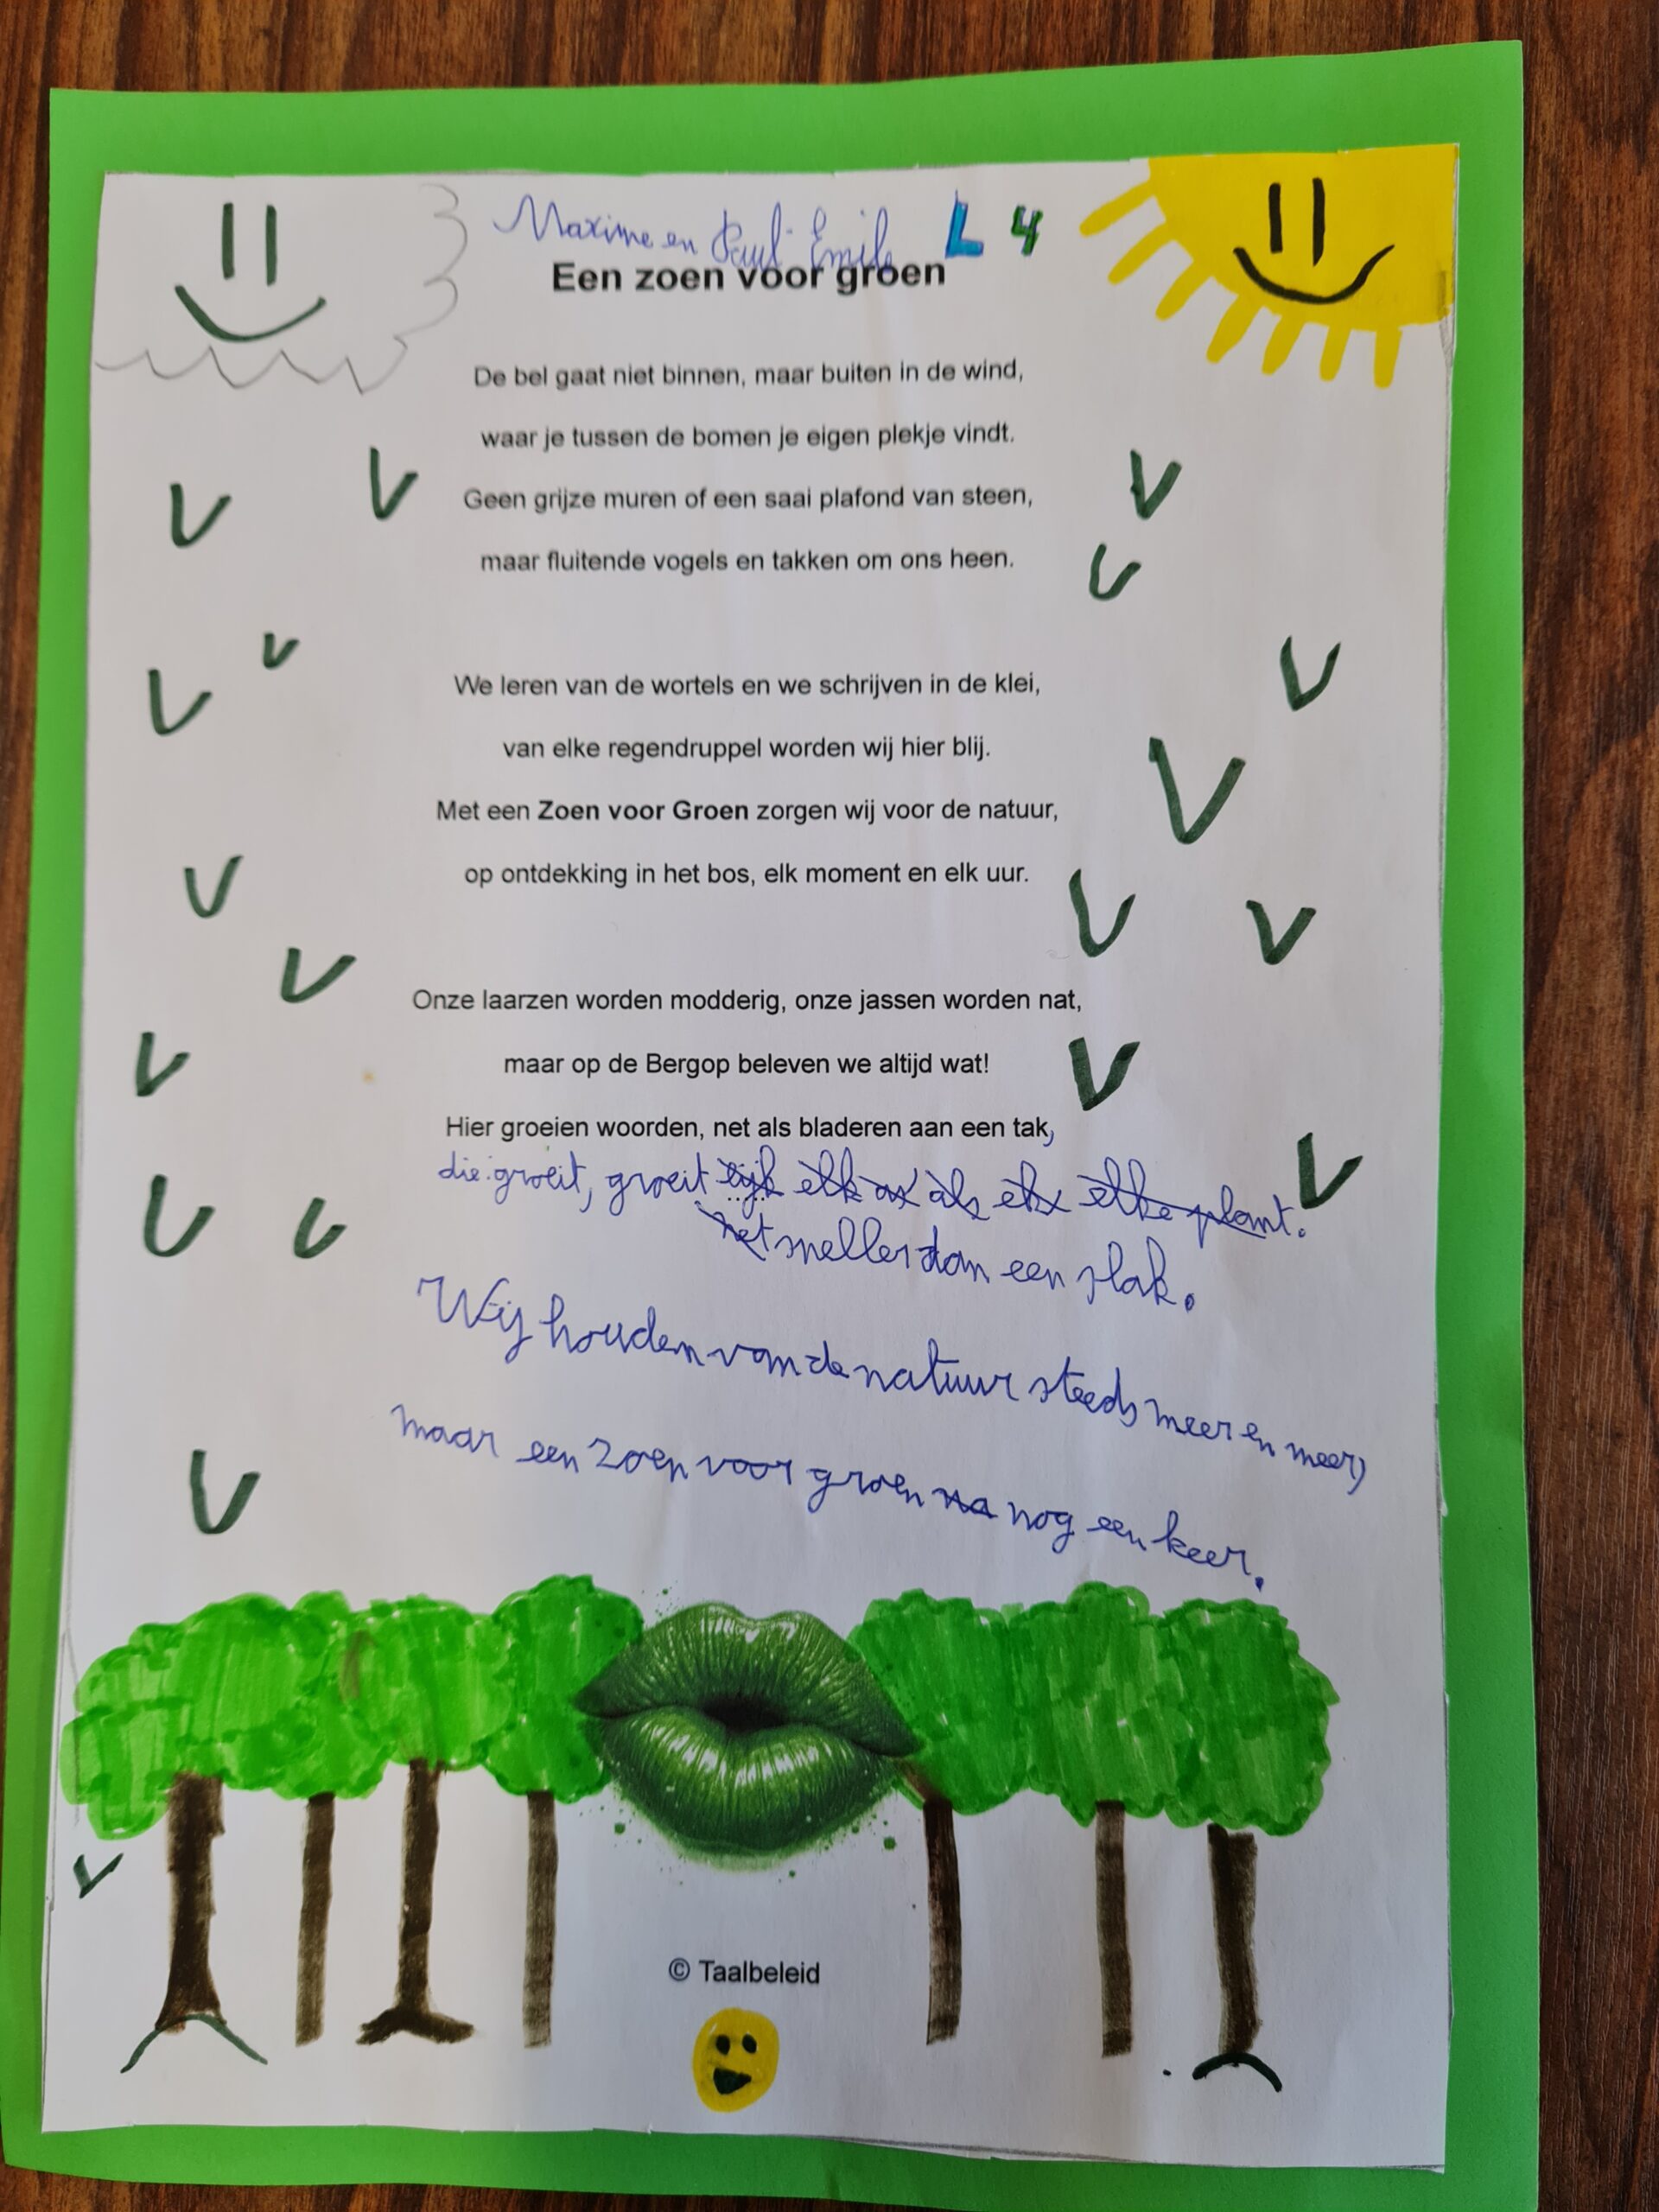 Maxime en Paul-Emile L4
Een zoen voor groen
De bel gaat niet binnen, maar buiten in de wind,
waar je tussen de bomen je eigen plekje vindt.
Geen grijze muren of een saai plafond van steen,
maar fluitende vogels en takken om ons heen.
We leren van de wortels en we schrijven in de klei,
van elke regendruppel worden wij hier blij.
Met een Zoen voor Groen zorgen wij voor de natuur,
op ontdekking in het bos, elk moment en elk uur.
Onze laarzen worden modderig, onze jassen worden nat,
maar op de Bergop beleven we altijd wat!
Hier groeien woorden, net als bladeren aan een tak,
die groeit, groeit als elke plant.
het sneller dan een slak.
Wij houden van de natuur steeds meer en meer,
maar een zoen voor groen na nog een keer.
© Taalbeleid